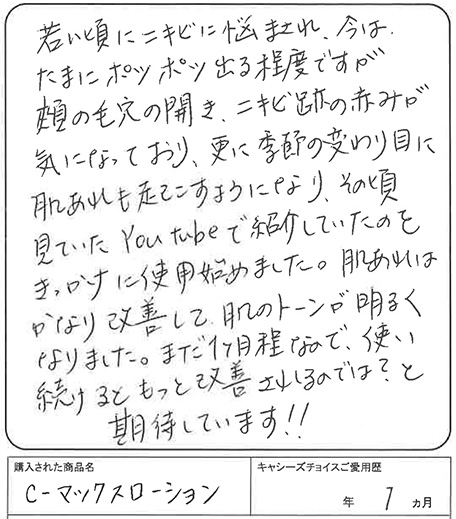 若い頃にニキビに悩まされ、今は、
たまにポツポツ出る程度ですが
頬の毛穴の開き、ニキビ跡の赤みが
気になっており、更に季節の変わり目に
肌あれも起こすようになり、その頃
見ていたYoutubeで紹介していたのを
きっかけに使用始めました。肌あれは
かなり改善して、肌のトーンが明るく
なりました。まだ1ヶ月程なので、使い
続けるともっと改善されるのでは?と
期待しています!!
購入された商品名
キャシーズチョイスご愛用歴
C-マックスローション
年 1 ヵ月